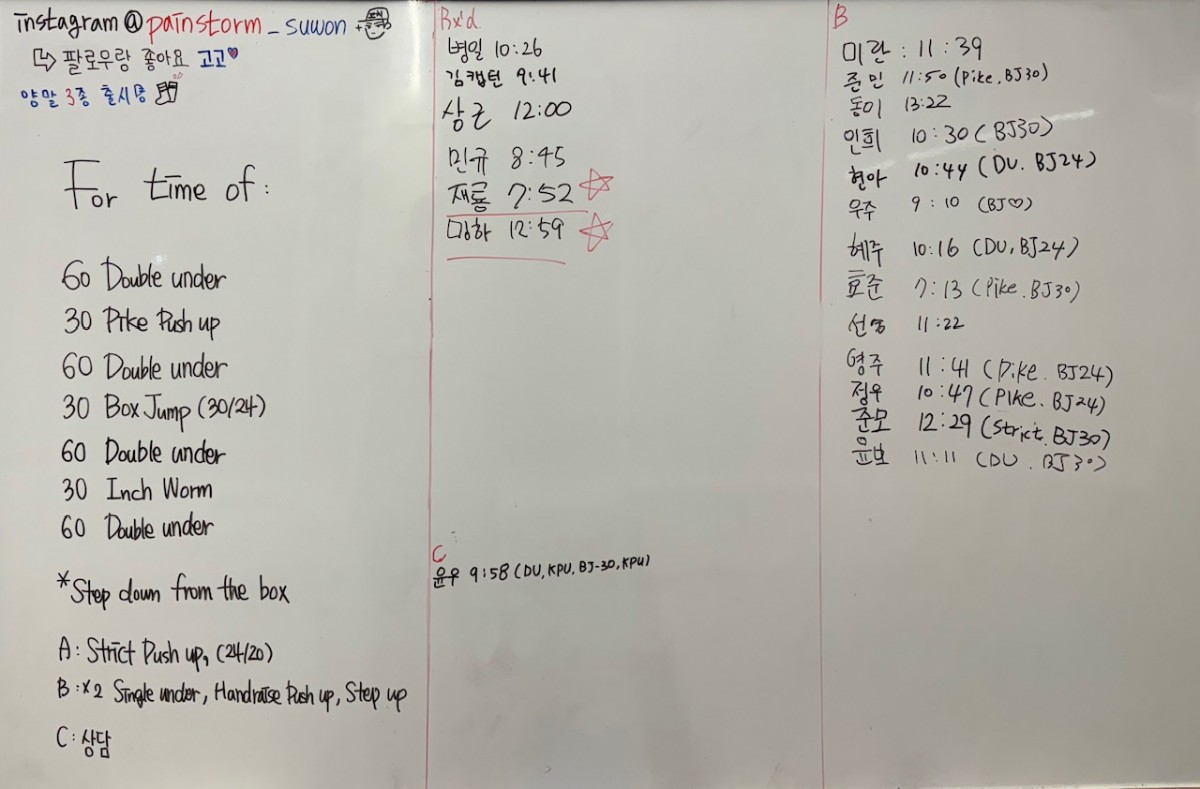 instagram@painstorm_suwon
팔로우랑 좋아요 고고
양말 3종 출시중
For time of:
60 Double under
30 Pike Push up
60 Double under
30 Box Jump (30/24)
60 Double under
30 Inch Worm
60 Double under
*Step down from the box
A: Strict Push up, (24/20)
B: x2 Single under, Handraise Push up, Step up
C: 상담
Rx'd
병일 10:26
김캡틴 9:41
상근 12:00
민규 8:45
재룡 7:52
밍하 12:59
C
윤우 9:58 (DU, KPU, BJ-30, KPU)
B
미란: 11:39
준민 11:50 (Pike. BJ30)
동미 13:22
인희 10:30 (BJ30)
현아 10:44 (DU. BJ24)
우주 9:10 (BJ♡)
혜주 10:16 (DU, BJ24)
효준 7:13 (Pike. BJ30)
선영 11:22
영주 11:41 (Pike. BJ24)
정우 10:47 (Pike. BJ24)
준모 12:29 (Strict. BJ30)
윤보 11:11 (DU. BJ30)